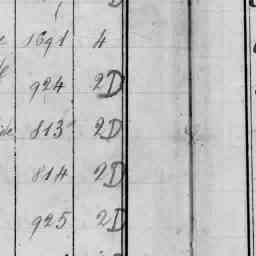 1691 4
924 2D
813 2D
814 2D
925 2D